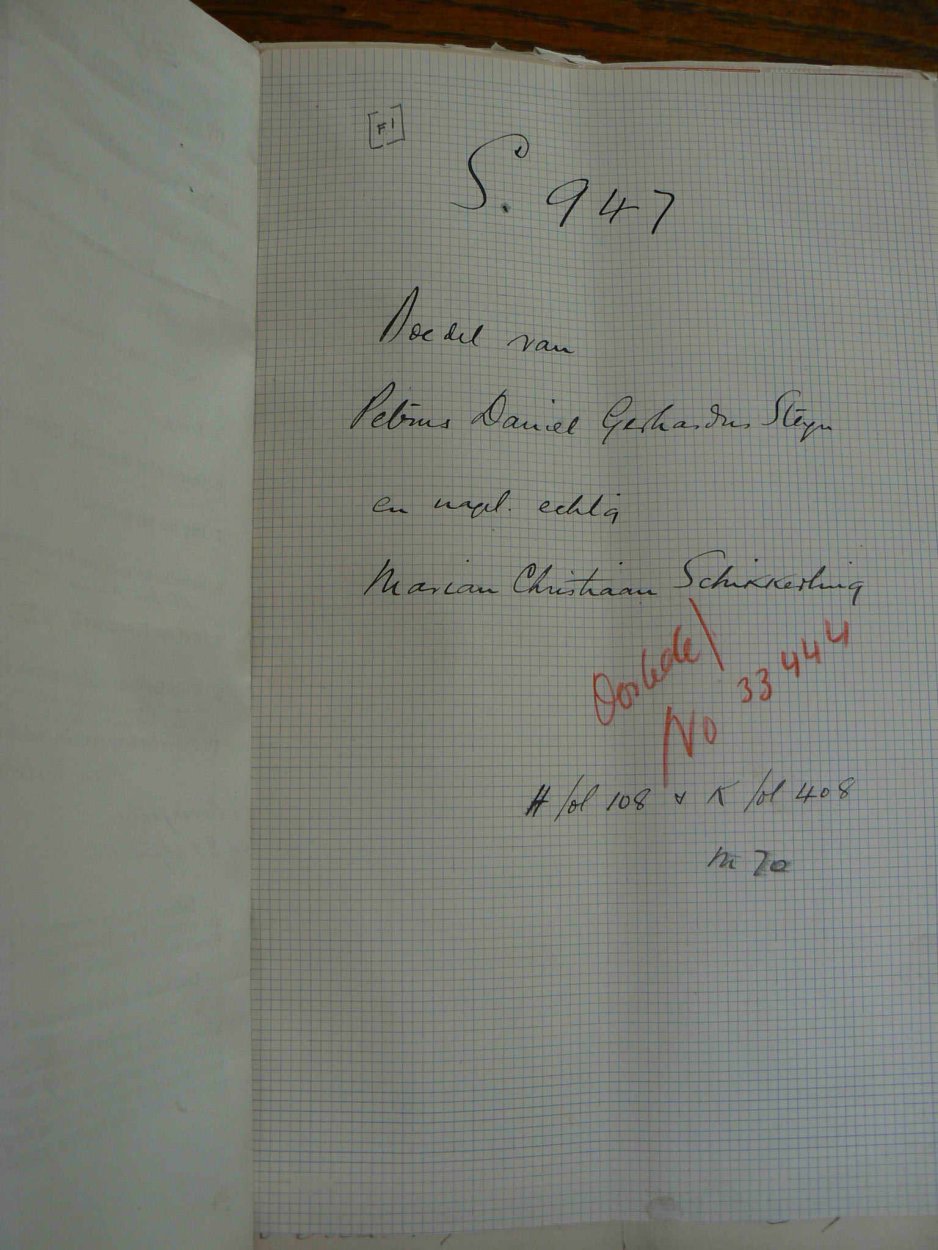 [F1]
S. 947
Boedel van
Petrus Daniel Gerhardus Steyn
en nagel. echtg
Marian Christiaan Schikkerling
Oorlede
No 33444
H fol 108 & K fol 408
M 70